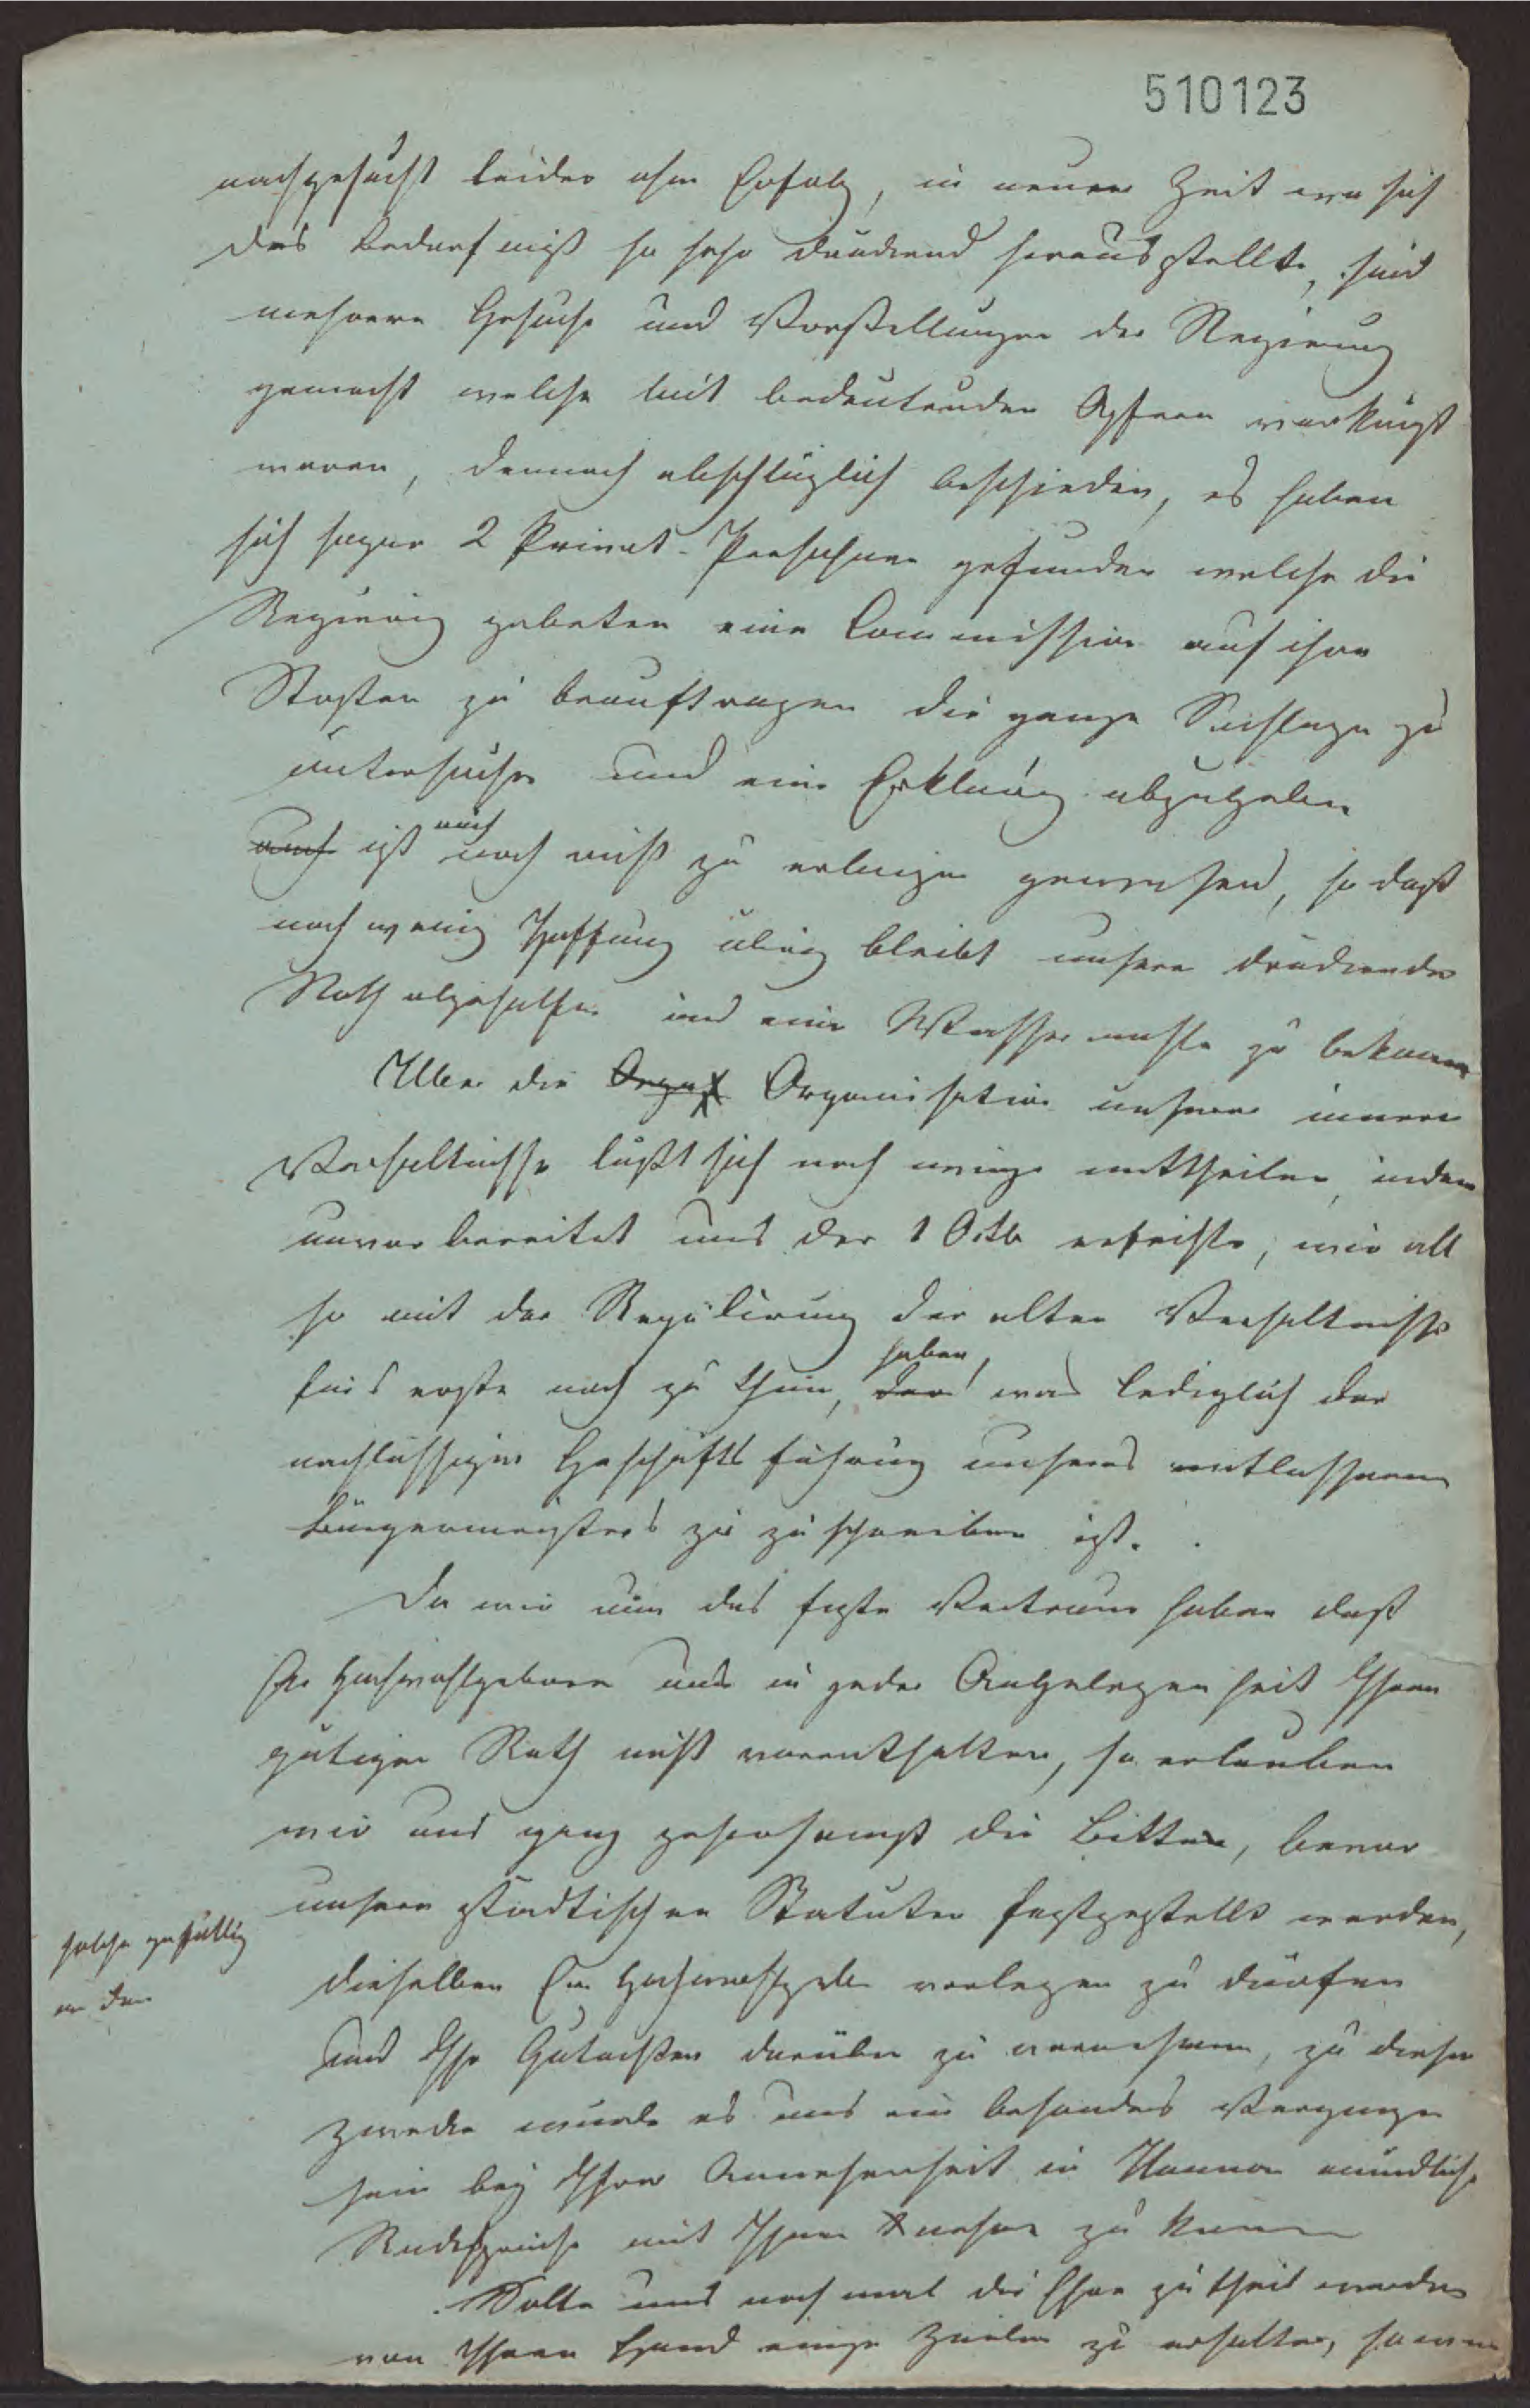 510123
nachgesucht leider ohne Erfolg, in neuer Zeit wo sich
das Bedurfniß so sehr drückend herausstellte, sind
mehrere Gesuche und Vorstellungen der Regierung
gemacht welche mit bedeutenden Opfern verknüpft
waren, dennoch abschläglich beschieden, es haben
sich sogar 2 Privat-Persohnen gefunden welche die
Regierung gebeten eine Commission auf ihre
Kosten zu beauftragen die ganze Sachlage zu
untersuchen und eine Erklärung abzugeben
auch ist auch noch nicht zu erlangen gewesen, so daß
noch wenig Hoffnung übrig bleibt unsere drückende
Noth abgeholfen und eine Wassermühle zu bekommen
Über die Orga Organisation unserer innern
Verhältnisse läßt sich noch wenig mittheilen, indem
unvorbereitet uns der 1 Octb erreichte, wir all
so mit der Regulirung der alten Verhältnisse
fürs erste noch zu thun, haben, was lediglich der
nachlässigen Geschäftsführung unseres entlassenen
Bürgermeisters zu zuschreiben ist.
Da wir nun das feste Vertraun haben daß
Sie Hochwohlgeboren uns in jeder Angelegenheit Ihren
gütigen Rath nicht vorenthalten, so erlauben
wir uns ganz gehorsamst die Bitte, bevor
unsere städtischen Statuten festgestellt werden,
solche gefällig
an den
dieselben Ew Hochwohlgeb vorlegen zu dürfen
und Ihr Gutachten darüber zu vernehmen, zu diesem
Zwecke würde es uns ein besondes Vergnügen
sein bey Ihrer Anwesenheit in Hannov mündliche
Rücksprache mit Ihnen nehmen zu können
Sollte uns noch mal die Ehre zu theil werden
von Ihrer Hand einige Zeilen zu erhalten, so